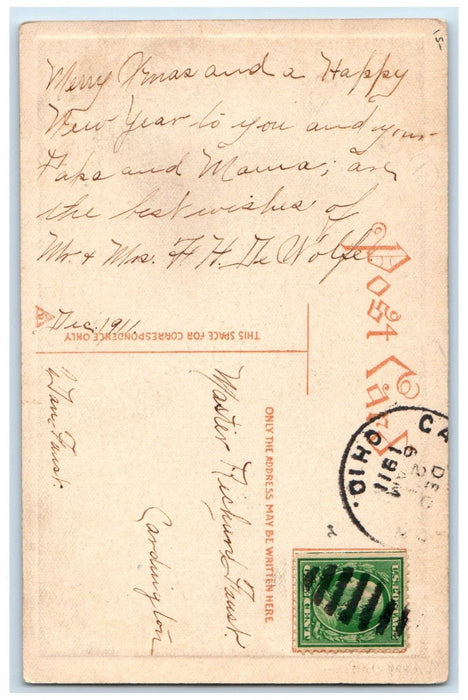 Merry Xmas and a Happy
New Year to you and your
Papa and Mama; are
the best wishes of
Mr. & Mrs. F. H. De Wolfe
Dec. 1911
THIS SPACE FOR CORRESPONDENCE ONLY
Post Card
ONLY THE ADDRESS MAY BE WRITTEN HERE
Master Richard Faust
Cardington
Faust.
CA
DEC
1911
OHIO.
U.S. POSTAGE
ONE CENT
15-